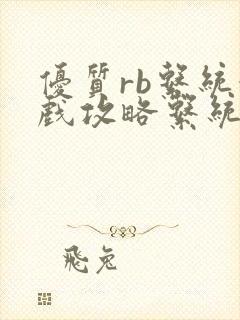 優質rb繫統
戲攻略繫統
飛兔